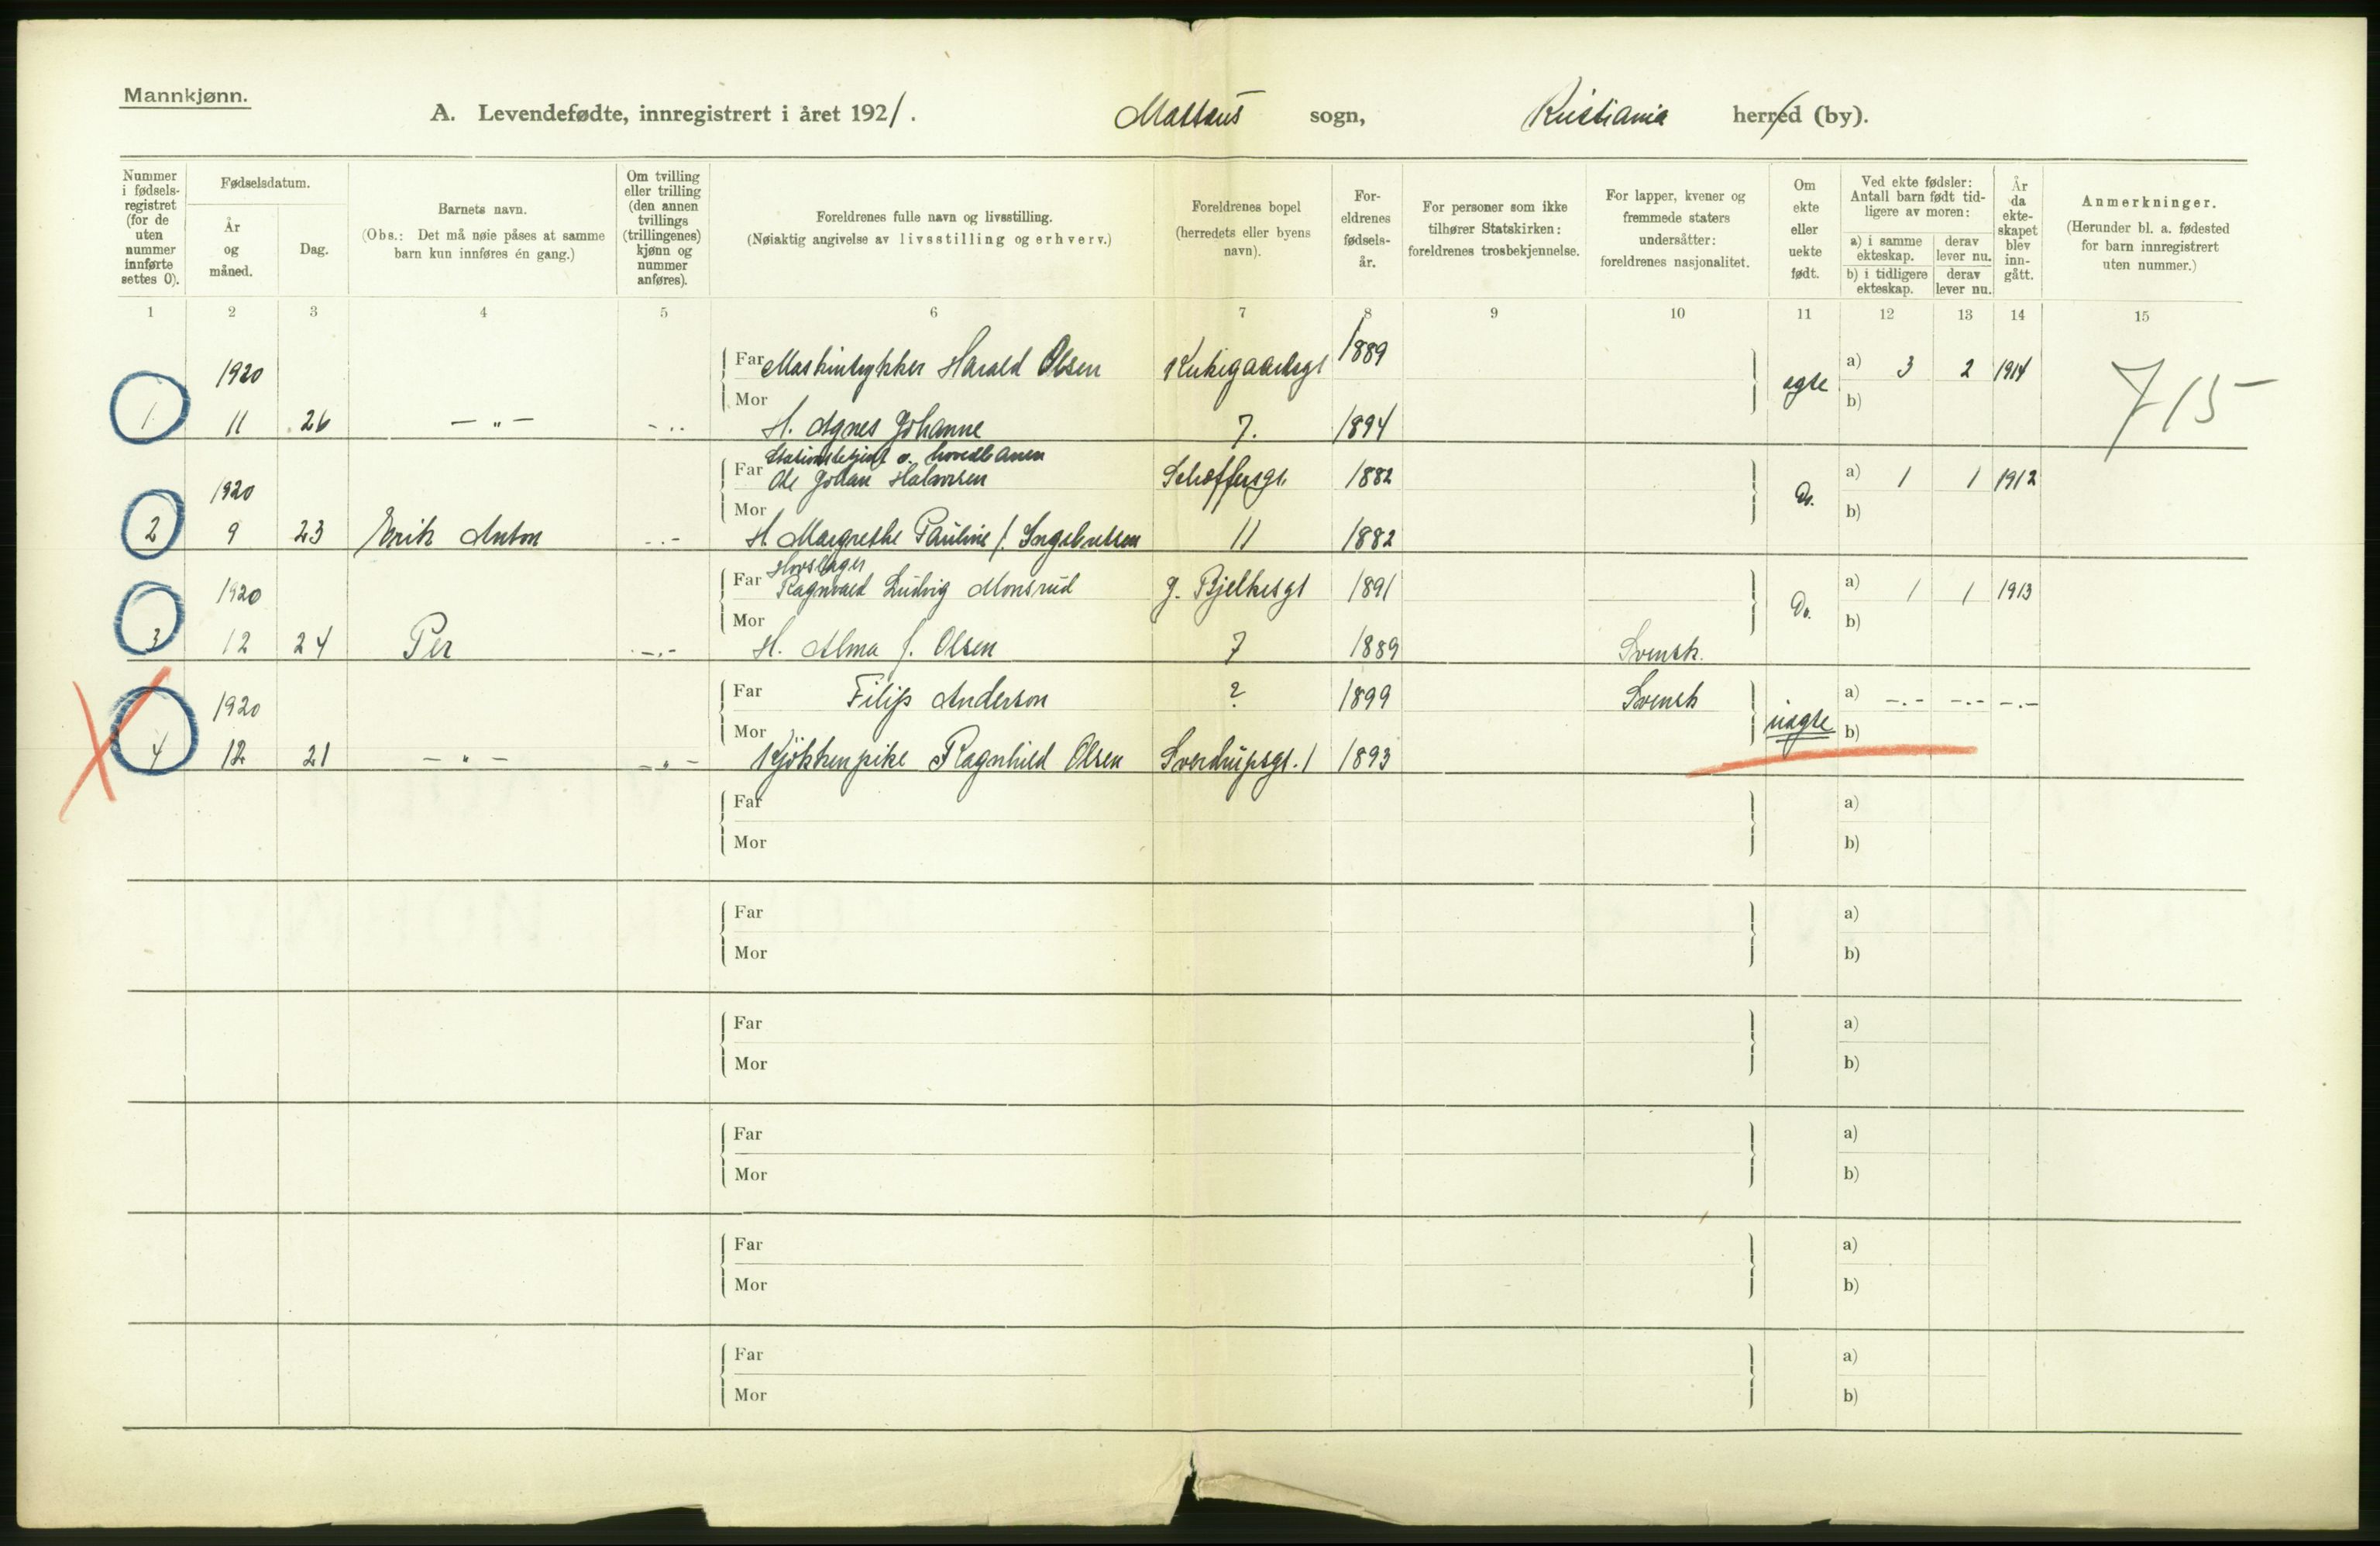 Mannkjønn.
A. Levendefødte, innregistrert i året 1921. Mattæus sogn, Kristiania herred (by).
Nummer i fødselsregistret (for de uten nummer innførte settes 0).
Fødselsdatum.
År og måned.
Dag.
Barnets navn.
(Obs.: Det må nøie påses at samme barn kun innføres én gang.)
Om tvilling eller trilling (den annen tvillings (trillingenes) kjønn og nummer anføres).
Foreldrenes fulle navn og livsstilling.
(Nøiaktig angivelse av livsstilling og erhverv.)
Foreldrenes bopel (herredets eller byens navn).
Foreldrenes fødselsår.
For personer som ikke tilhører Statskirken: foreldrenes trosbekjennelse.
For lapper, kvener og fremmede staters undersåtter: foreldrenes nasjonalitet.
Om ekte eller uekte født.
Ved ekte fødsler: Antall barn født tidligere av moren:
a) i samme ekteskap. derav lever nu.
b) i tidligere ekteskap. derav lever nu.
År da ekteskapet blev inngått.
Anmerkninger.
(Herunder bl. a. fødested for barn innregistrert uten nummer.)
1 2 3 4 5 6 7 8 9 10 11 12 13 14 15
1920 Far Maskintrykker Harald Olsen Kirkegaardsgt 1889 egte a) 3 2 1914 715
1 11 26 — „ — - „ - Mor H. Agnes Johanne 7. 1894 b)
Stationsbetjent v. hovedbanen
1920 Far Ole Johan Halvorsen Schoffersgt. 1882 Do. a) 1 1 1912
2 9 23 Erik Anton - „ - Mor H. Margrethe Pauline f. Ingebretsen 11 1882 b)
Hovslager
1920 Far Ragnvald Ludvig Monsrud J. Bjelkesgt 1891 Do. a) 1 1 1913
3 12 24 Per - „ - Mor H. Alma f. Olsen 7 1889 Svensk. b)
1920 Far Filip Anderson ? 1899 Svensk uegte a) - „ - - „ - - „ -
4 12 21 — „ — - „ - Mor Kjøkkenpike Ragnhild Olsen Sverdrupsgt. 1 1893 b)
Far a)
Mor b)
Far a)
Mor b)
Far a)
Mor b)
Far a)
Mor b)
Far a)
Mor b)
Far a)
Mor b)